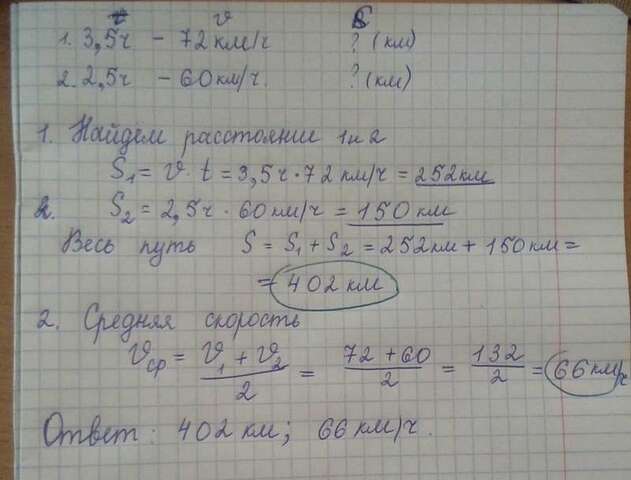 t v S
1. 3,5ч - 72 км/ч ? (км)
2. 2,5ч - 60км/ч. ? (км)
1. Найдем расстояние 1 и 2
S₁ = v t = 3,5ч · 72 км/ч = 252км
2. S₂ = 2,5ч · 60км/ч = 150 км
Весь путь S = S₁ + S₂ = 252км + 150км =
= 402 км
2. Средняя скорость
Vср = (V₁ + V₂)/2 = (72 + 60)/2 = 132/2 = 66км/ч
Ответ: 402 км; 66 км/ч.